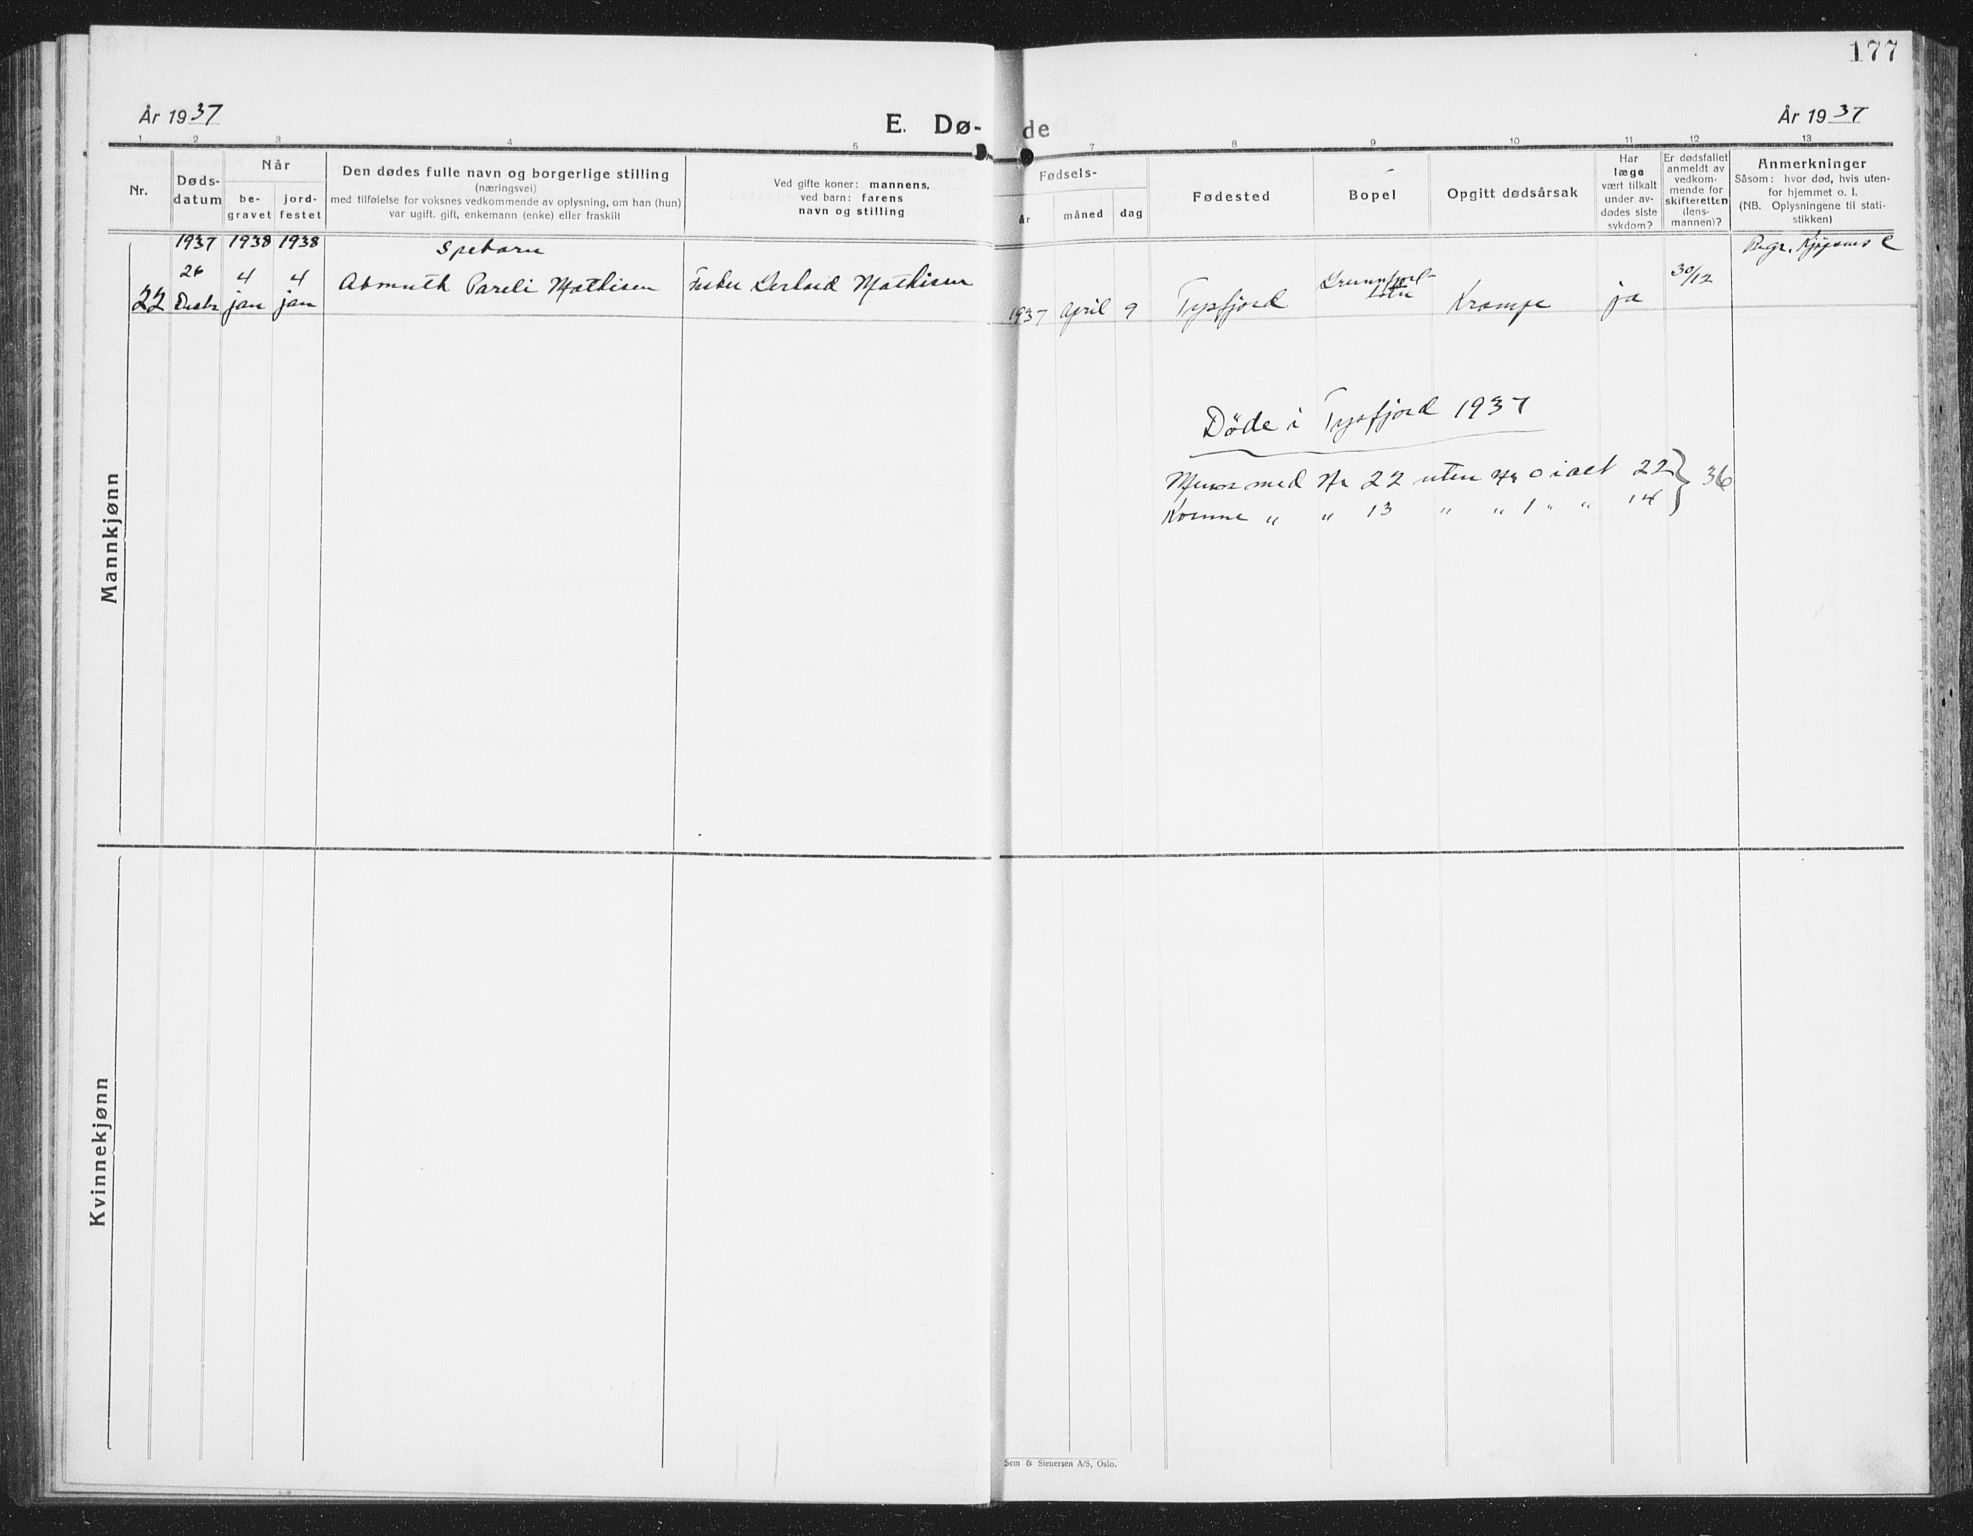 177
År 1937
E. Dø-
de
År 1937
1 2 3 4 5 7 8 9 10 11 12 13
Nr.
Døds-
datum
Når
be-
gravet
jord-
festet
Den dødes fulle navn og borgerlige stilling
(næringsvei)
med tilføielse for voksnes vedkommende av oplysning, om han (hun)
var ugift, gift, enkemann (enke) eller fraskilt
Ved gifte koner: mannens,
ved barn: farens
navn og stilling
Fødsels-
år
måned
dag
Fødested
Bopel
Opgitt dødsårsak
Har
læge
vært tilkalt
under av-
dødes siste
sykdom?
Er dødsfallet
anmeldt av
vedkom-
mende for
skifteretten
(lens-
mannen)?
Anmerkninger
Såsom: hvor død, hvis uten-
for hjemmet o. l.
(NB. Oplysningene til stati-
stikken)
Mannkjønn
1937 1938 1938
spebarn
22
26
4
jan
4
jan
Mathisen
Fisker
Mathisen
1937 April 9
Tysfjord
Krampe
ja
30/12
Begr.
Døde i Tysfjord 1937
med Nr 22 uten Nr 0 ialt 22 } 36
" " 13 " " 1 " " 14
Kvinnekjønn
Sem & Stenersen A/S, Oslo.